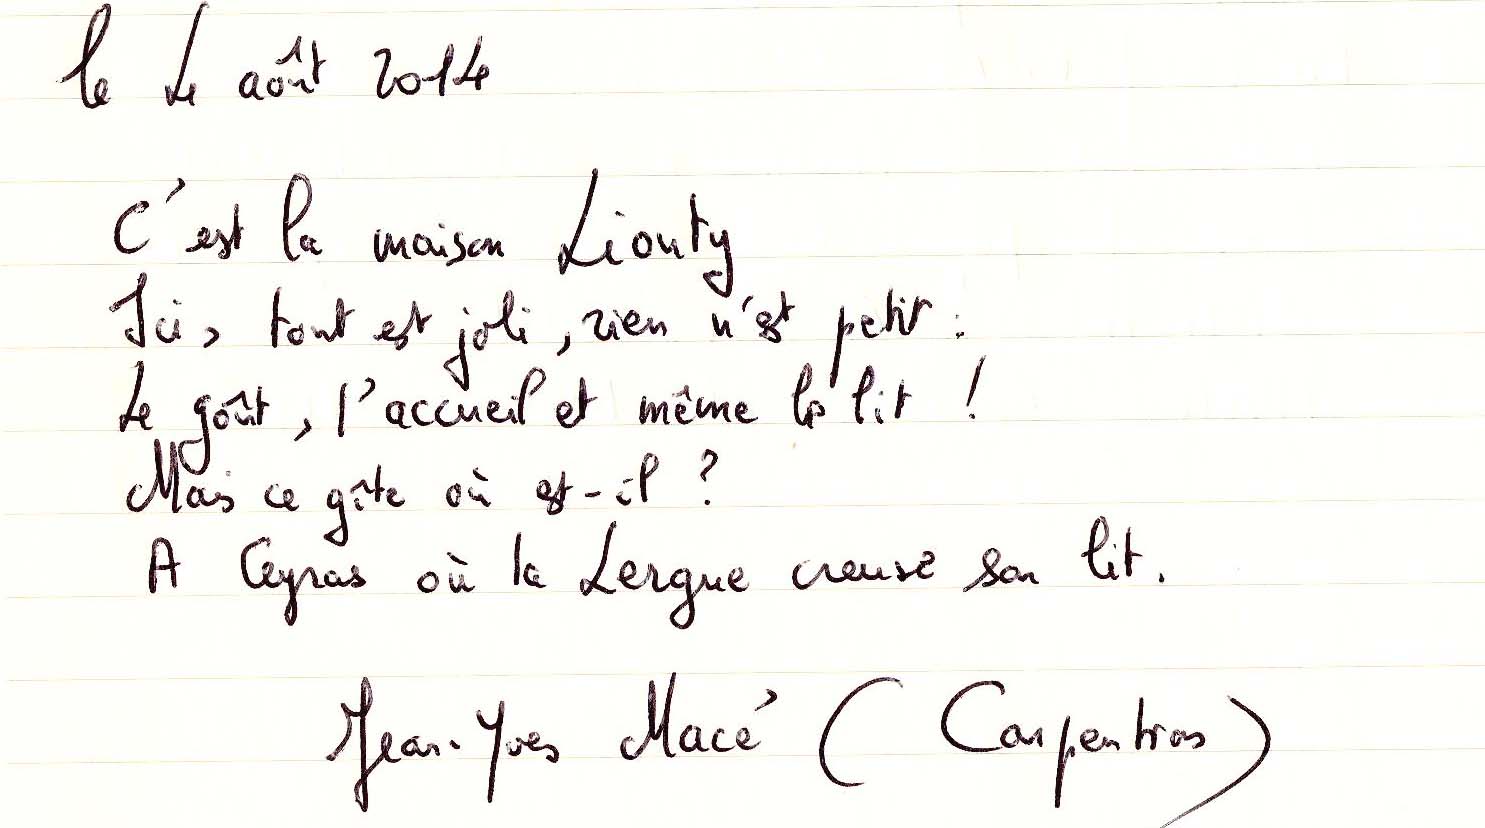 le 4 août 2014
C'est la maison Liouty
Ici, tout est joli, rien n'est petit :
Le goût, l'accueil et même le lit !
Mais ce gîte où est-il ?
A Ceyras où la Lergue creuse son lit.
Jean-Yves Macé (Carpentras)